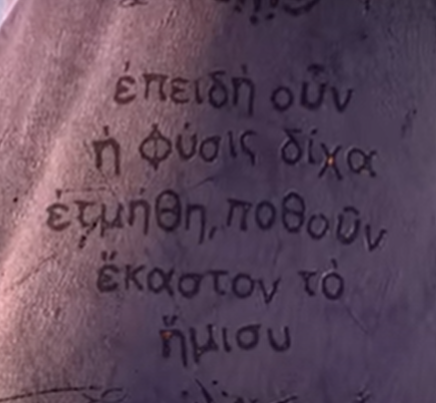 ἐπειδὴ οὖν
ἡ φύσις δίχα
ἐτμήθη, ποθοῦν
ἕκαστον τὸ
ἥμισυ